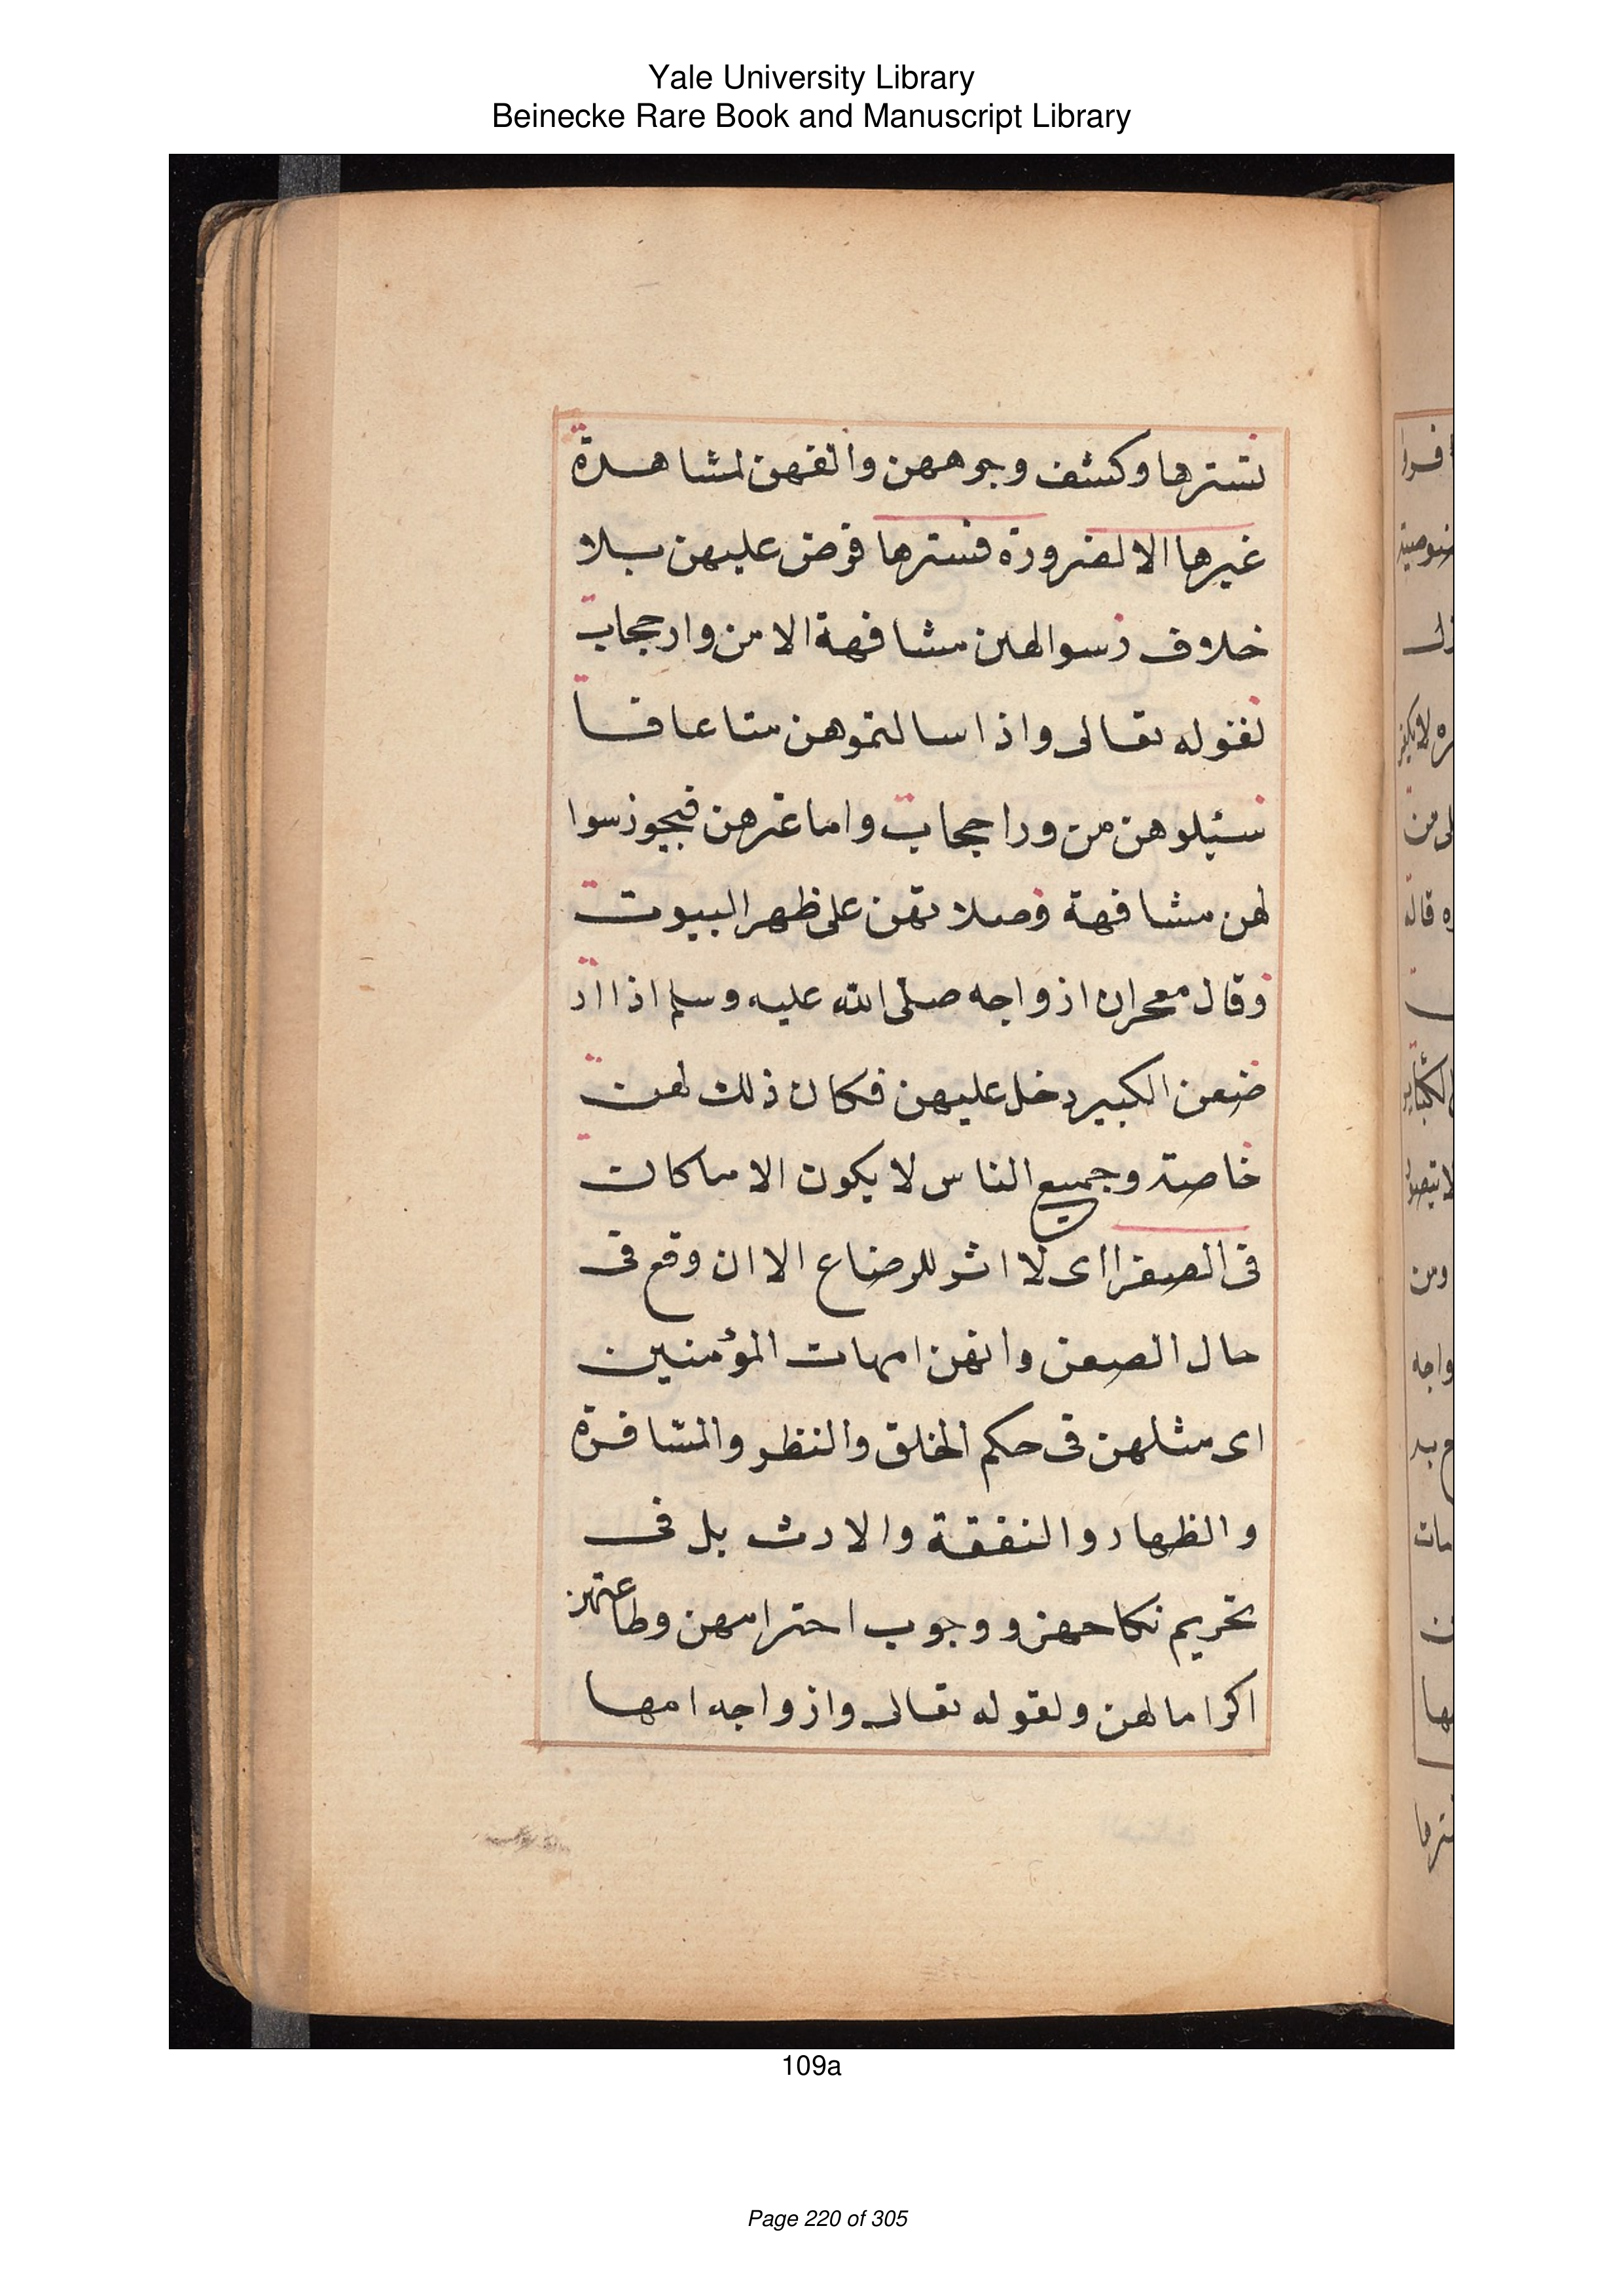 Yale University Library
Beinecke Rare Book and Manuscript Library
تسترها وكشف وجوههن والفهن لمشاهدة
غيرها الا لضرورة فسترها فرض عليهن بلا
خلاف وسوالهن مشافهة الا من وار حجاب
لقوله تعالى واذا سالتموهن متاعا فا
سئلوهن من ورا حجاب واما غيرهن فيجوز سوا
لهن مشافهة وصلا تهن على ظهر البيوت
وقال معمر ان ازواجه صلى الله عليه وسلم اذا ار
ضعن الكبير دخل عليهن فكان ذلك لهن
خاصة وجميع الناس لا يكون الا ما كان
فى الصغر اى لا اثر للرضاع الا ان وقع فى
حال الصغر وانهن امهات المؤمنين
اى مثلهن فى حكم الخلق والنظر والمسافرة
والظهار والنفقة والارث بل فى
تحريم نكاحهن ووجوب احترامهن وطاعتهن
اكراما لهن ولقوله تعالى وازواجه امها
109a
Page 220 of 305